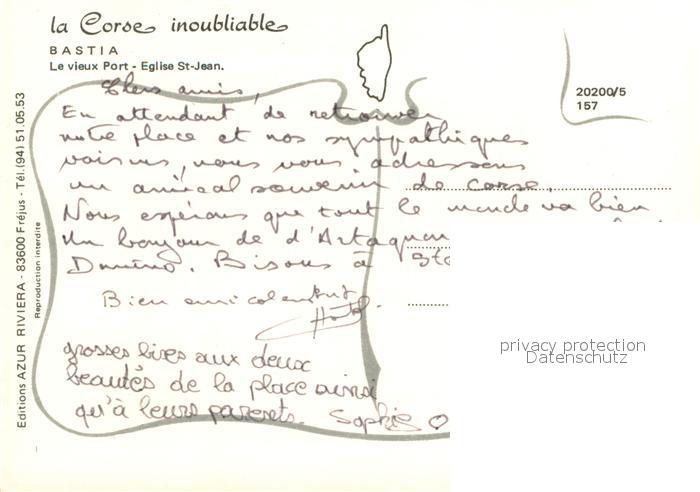 la Corse inoubliable
BASTIA
Le vieux Port - Eglise St-Jean.
20200/5
157
Chers amis,
En attendant de retrouver
notre place et nos sympathiques
voisins, nous vous adressons
un amical souvenir de Corse.
Nous espérons que tout le monde va bien
Un bonjour de d'Artagnan
Domino. Bisous à
Bien amicalement
grosses bises aux deux
beautés de la place ainsi
qu'à leurs parents. Sophie
Editions AZUR RIVIERA - 83600 Fréjus - Tél. (94) 51.05.53
Reproduction interdite
privacy protection
Datenschutz